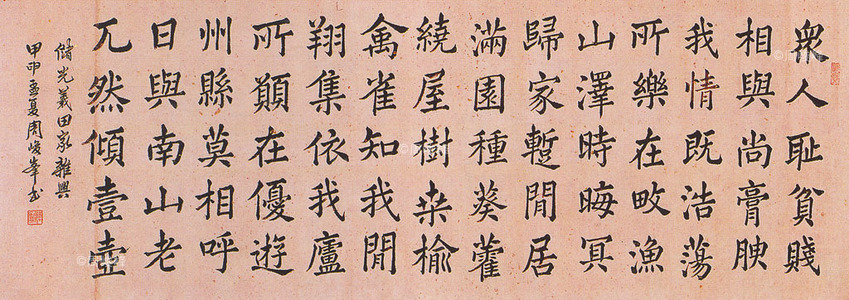 衆人耻貧賤
相與尚膏腴
我情既浩蕩
所樂在畋漁
山澤時晦冥
歸家蹔閒居
滿園種葵藿
繞屋樹桒榆
禽雀知我閒
翔集依我廬
所願在優遊
州縣莫相呼
日與南山老
兀然傾壹壺
儲光羲田家雜興
甲申孟夏周俊峯书